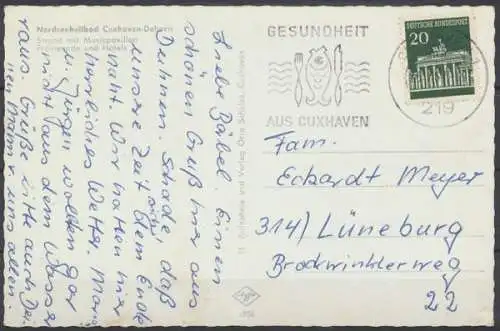 Nordseeheilbad Cuxhaven-Duhnen
Strand mit Musikpavillon
Promenade und Hotels
Liebe Bärbel. Einen
schönen Gruß hier aus
Duhnen. Schade, daß
unsere Zeit sich dem Ende
naht. Wir hatten hier
herrliches Wetter.
u. Jürgen wollten gar
nicht aus dem Wasser
raus. Grüße bitte auch Dei-
nen Mann v. uns allen.
Aufnahme und Verlag Otto
Agfa
GESUNDHEIT
AUS CUXHAVEN
DEUTSCHE BUNDESPOST
20
219
Fam.
Eckardt Meyer
314) Lüneburg
Brockwinklerweg
22